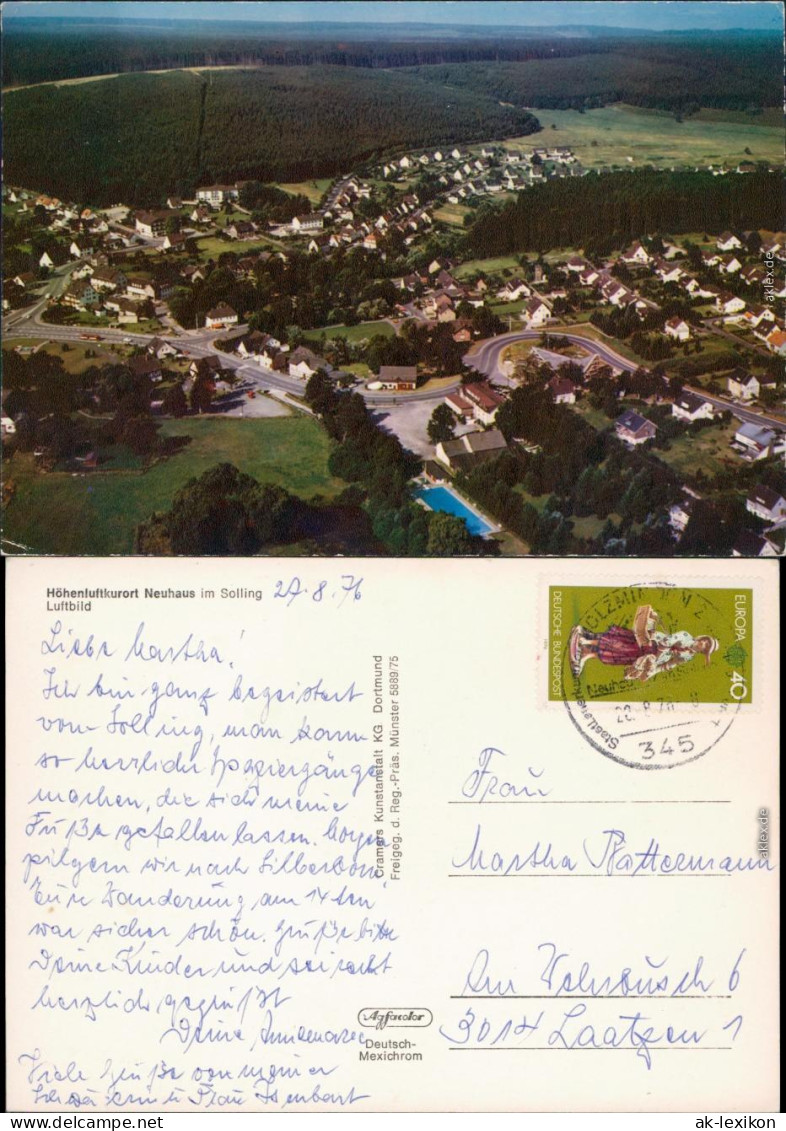 Höhenluftkurort Neuhaus im Solling
Luftbild
27.8.76
Liebe Martha!
Ich bin ganz begeistert
vom Solling, man kann
so herzliche Spaziergänge
machen, die sich meine
Füße gefallen lassen. Morgen
pilgern wir nach Silberborn.
Eure Wanderung am 14ten
war sicher schön. Grüße bitte
Deine Kinder und sei recht
herzlich gegrüßt
Deine Annemarie
Viele Grüße von meiner
Schwägerin u Frau Isenbart
Cramers Kunstanstalt KG Dortmund
Freigeg. d. Reg.-Präs. Münster 5889/75
Agfacolor
Deutsch-
Mexichrom
DEUTSCHE BUNDESPOST
EUROPA
40
HOLZMINDEN 2
Neuhaus
345
Frau
Martha Plattermann
Am Wehrbusch 6
3014 Laatzen 1
akpool.de
ak-lexikon.de